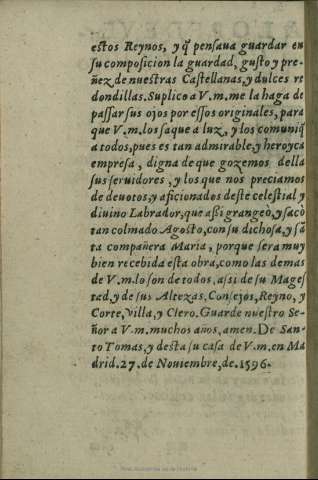 estos Reynos, y q̃ pensaua guardar en
su composicion la guardad, gusto y pre-
ñez de nuestras Castellanas, y dulces re
dondillas. Suplico a V.m. me la haga de
passar sus ojos por essos originales, para
que V.m. los saque a luz, y los comuniq̃
a todos, pues es tan admirable, y heroyca
empresa, digna de que gozemos della
sus seruidores, y los que nos preciamos
de deuotos, y aficionados deste celestial y
diuino Labrador, que assi grangeò, y sacò
tan colmado Agosto, con su dichosa, y sã
ta compañera Maria, porque sera muy
bien recebida esta obra, como las demas
de V.m. lo son de todos, assi de su Mages
tad, y de sus Altezas, Consejos, Reyno, y
Corte, Villa, y Clero. Guarde nuestro Se-
ñor a V.m. muchos años, amen. De San-
to Tomas, y desta su casa de V.m. en Ma
drid. 27. de Nouiembre, de. 1596.